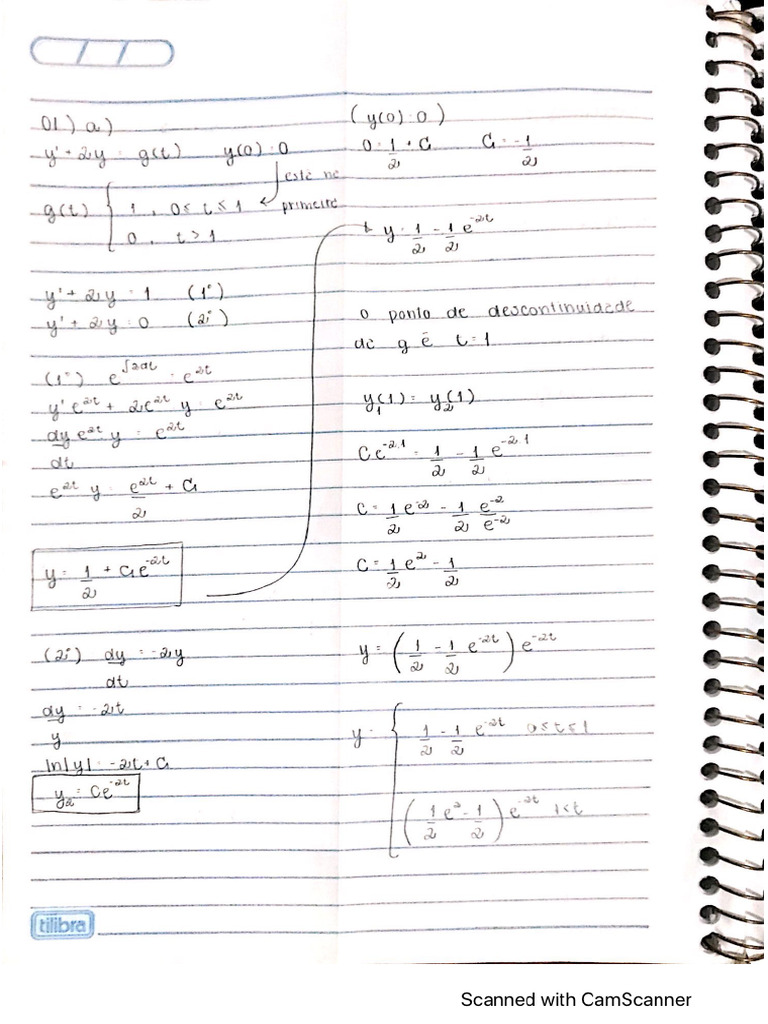 01) a)
y' + 2y = g(t)   y(0) = 0
este no
primeiro
g(t) { 1, 0 ≤ t ≤ 1
0, t > 1
y' + 2y = 1 (1º)
y' + 2y = 0 (2º)
(1º) e^∫2dt = e^2t
y' e^2t + 2e^2t y = e^2t
dy e^2t y = e^2t
dt
e^2t y = e^2t/2 + C₁
y = 1/2 + C₁e^-2t
(2º) dy/dt = -2y
dy/y = -2t
ln|y| = -2t + C₁
y₂ = Ce^-2t
(y(0) = 0)
0 = 1/2 + C₁   C₁ = -1/2
y = 1/2 - 1/2 e^-2t
o ponto de descontinuidade
de g é t = 1
y₁(1) = y₂(1)
Ce^-2.1 = 1/2 - 1/2 e^-2.1
C = 1/2 e^2 - 1/2 e^-2/e^-2
C = 1/2 e^2 - 1/2
y = (1/2 - 1/2 e^-2t) e^-2t
y = { 1/2 - 1/2 e^-2t   0 ≤ t ≤ 1
(1/2 e^2 - 1/2) e^-2t   1 < t
tilibra
Scanned with CamScanner